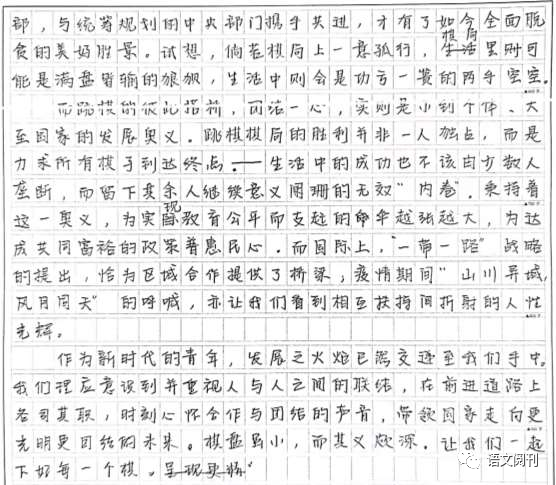 部，与统筹规划的中央部门携手共进，才有了如今全面脱
贫的美好胜景。试想，倘若棋局上一意孤行，棋局里则可
能是满盘皆输的狼狈，生活中则会是功亏一篑的两手空空。
而跳棋的彼此搭桥，团结一心，实则是小到个体、大
至国家的发展奥义。跳棋棋局的胜利并非一人独占，而是
力求所有棋子到达终点。生活中的成功也不该由少数人
垄断，而留下其余人继续意义阑珊的无效“内卷”。秉持着
这一奥义，为实现教育公平而支起的伞越张越大，为达
成共同富裕的政策普惠民心。而国际上，“一带一路”战略
的提出，恰为区域合作提供了桥梁，疫情期间“山川异域，
风月同天”的呼喊，亦让我们看到相互扶持间折射的人性
光辉。
作为新时代的青年，发展之火炬已然交递至我们手中。
我们理应意识到并重视人与人之间的联结，在前进道路上
各司其职，时刻心怀合作与团结的声音，带领国家走向更
光明更团结的未来。棋盘虽小，而其义颇深。让我们一起
下好每一个棋。
语文阅刊